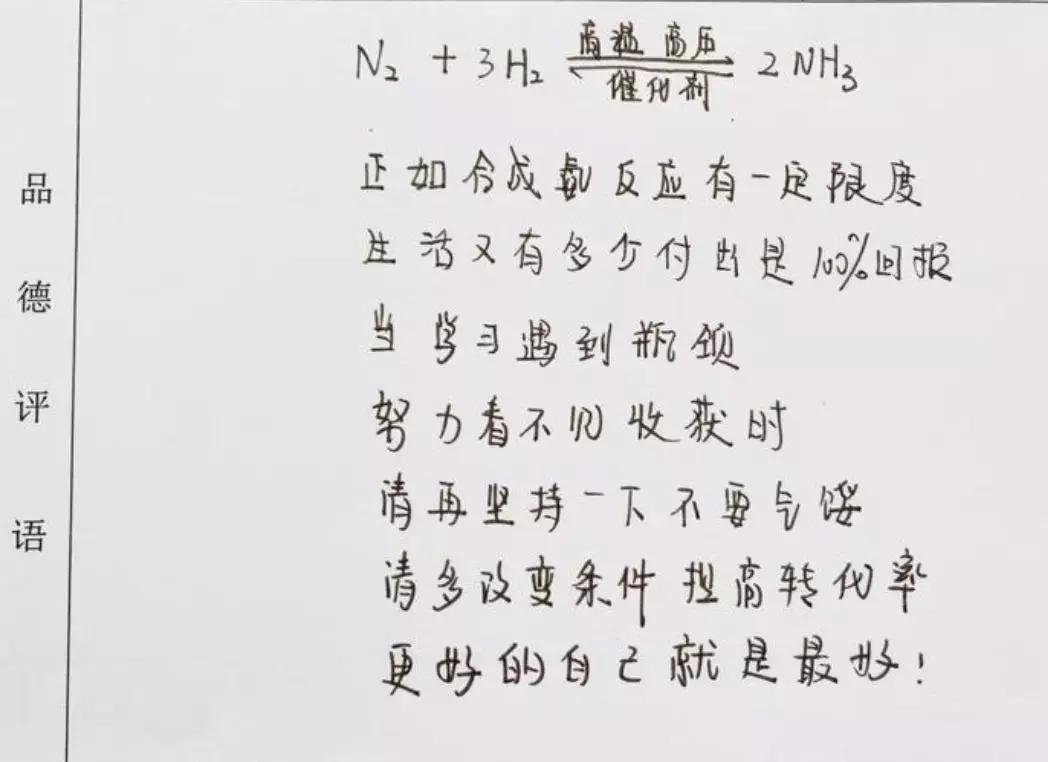 品德评语
N₂ + 3H₂ 高温 高压 ⇌ 催化剂 2NH₃
正如合成氨反应有一定限度
生活又有多少付出是100%回报
当学习遇到瓶颈
努力看不见收获时
请再坚持一下不要气馁
请多改变条件提高转化率
更好的自己就是最好!